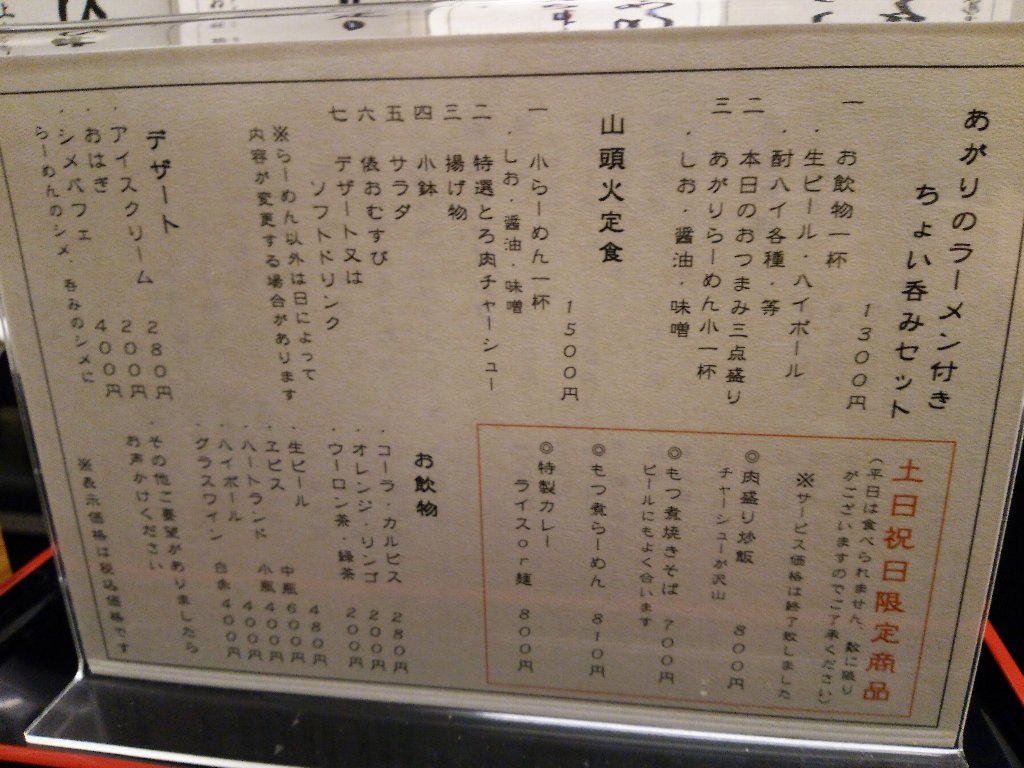 あがりのラーメン付き
ちょい呑みセット
1300円
一 お飲物一杯
・生ビール・ハイボール
・酎ハイ各種・等
二 本日のおつまみ三点盛り
三 あがりらーめん小一杯
・しお・醤油・味噌
山頭火定食
1500円
一 小らーめん一杯
・しお・醤油・味噌
二 特選とろ肉チャーシュー
三 揚げ物
四 小鉢
五 サラダ
六 俵おむすび
七 デザート又は
ソフトドリンク
※らーめん以外は日によって
内容が変更する場合があります
デザート
・アイスクリーム 280円
・おはぎ 200円
・シメパフェ 400円
らーめんのシメ、呑みのシメに
土日祝日限定商品
(平日は食べられません、数に限り
がございますのでご了承ください)
※サービス価格は終了致しました
◎肉盛り炒飯 800円
チャーシューが沢山
◎もつ煮焼きそば 700円
ビールにもよく合います
◎もつ煮らーめん 810円
◎特製カレー
ライスor麺 800円
お飲物
・コーラ・カルピス 280円
・オレンジ・リンゴ 200円
・ウーロン茶・緑茶 200円
・生ビール 480円
・ヱビス 中瓶 600円
・ハートランド 小瓶 400円
・ハイボール 400円
・グラスワイン 白赤 400円
・その他ご要望がありましたら
お声かけください
※表示価格は税込価格です